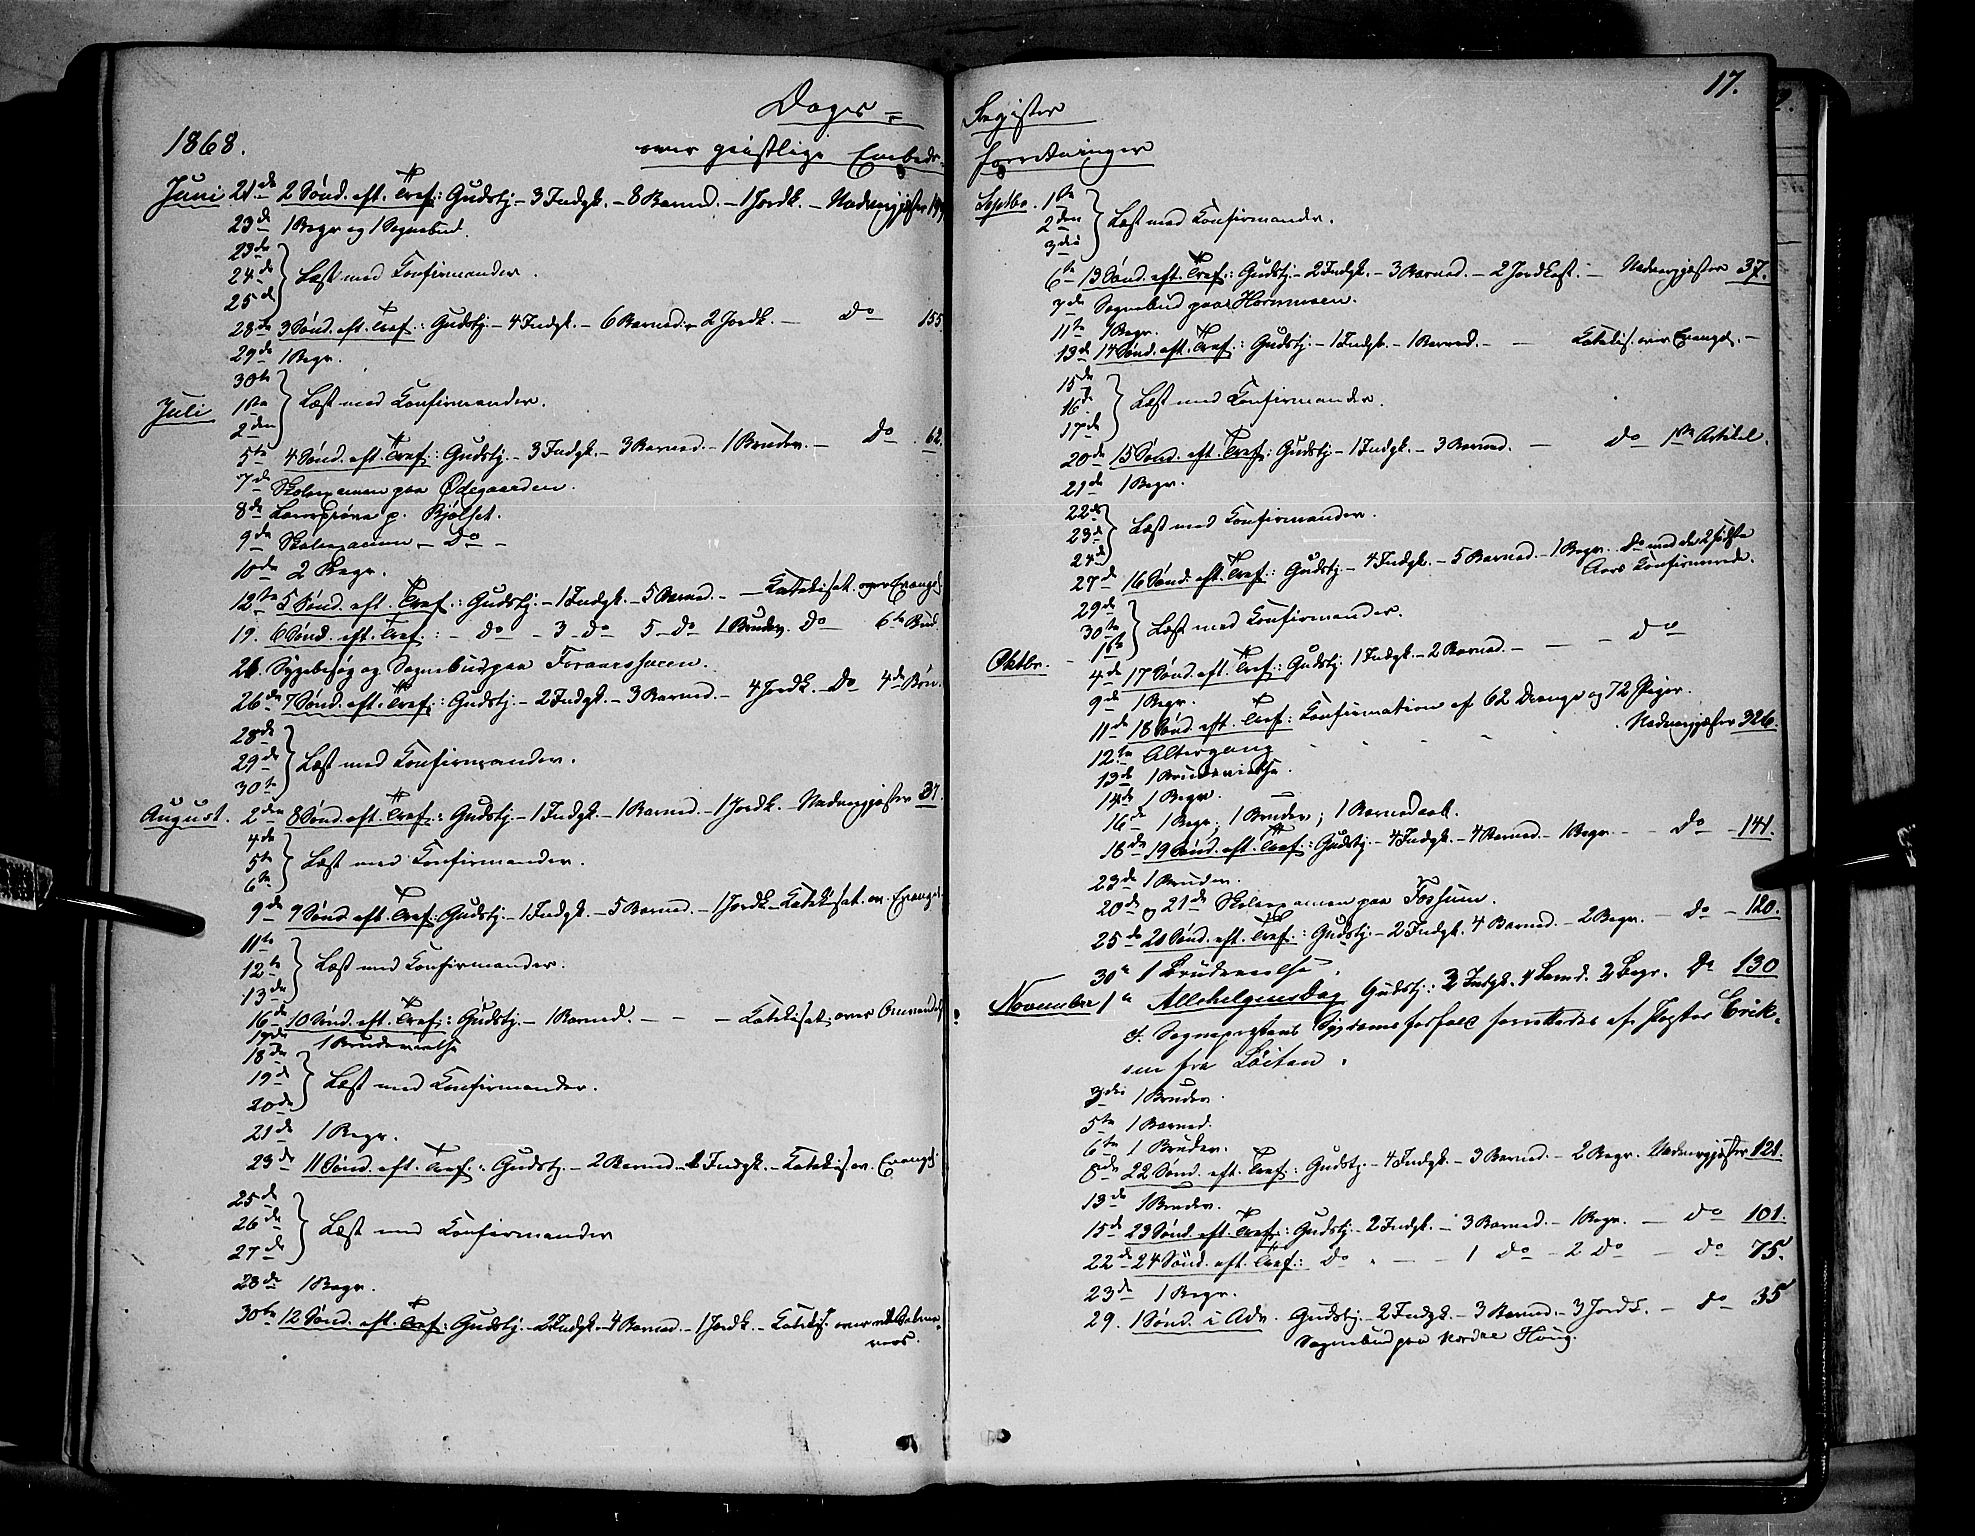 17.
Dags-
Register
1868.
over geistlige Embeds-
forretninger
Juni 21de 2 Sønd. eft. Tref.: Gudstj. – 3 Indgk. – 8 Barned. – 1 Jordk. – Nadvergjæster
23de 1 Begr. og 1 Sognebud.
23de
24de Læst med Konfirmander.
25de
28de 3 Sønd. eft. Tref.: Gudstj. – 4 Indgk. – 6 Barned. – 2 Jordk. – Do 155
29de 1 Begr.
30te
Juli 1ste Læst med Konfirmander.
2den
5te 4 Sønd. eft. Tref.: Gudstj. – 3 Indgk. – 3 Barned. – 1 Brudev. – Do 62.
7de Skoleexamen paa Ødegaarden.
8de p. Bjølset.
9de Skoleexamen – Do –
10de 2 Begr.
12te 5 Sønd. eft. Tref.: Gudstj. – 1 Indgk. – 5 Barned. – Katekisat. over Evangel.
19. 6 Sønd. eft. Tref.: – Do – 3 – Do 5 – Do 1 Brudev. Do – 6te Bud
26. Sygebesøg og Sognebud paa
26de 7 Sønd. eft. Tref.: Gudstj. – 2 Indgk. – 3 Barned. – 4 Jordk. Do 4de Bøn.
28de
29de Læst med Konfirmander.
30te
August. 2den 8 Sønd. eft. Tref.: Gudstj. – 1 Indgk. – 1 Barned. – 1 Jordk. – Nadvergjæster 31.
4de
5te Læst med Konfirmander.
6te
9de 9 Sønd. eft. Tref. Gudstj. – 1 Indgk. – 5 Barned. – 1 Jordk. – Katekisat. ov. Evangel.
11te
12te Læst med Konfirmander.
13de
16de 10 Sønd. eft. Tref.: Gudstj. – 1 Barned. – – – Katekisat. over
17de 1 Brudevielse
18de
19de Læst med Konfirmander.
20de
21de 1 Begr.
23de 11 Sønd. eft. Tref.: Gudstj. – 2 Barned. – 1 Indgk. – Katekis. ov. Evangel.
25de
26de Læst med Konfirmander
27de
28de 1 Begr.
30te 12 Sønd. eft. Tref: Gudstj. – 2 Indgk. – 4 Barned. – 1 Jordk. – Katekis. over
Septbr. 1ste
2den Læst med Konfirmander.
3die
6te 13 Sønd. eft. Tref.: Gudstj. – 2 Indgk. – 3 Barned. – 2 Jordkast. – Nadvergjæster 37.
7de Sognebud paa
11te 1 Begr.
13de 14 Sønd. eft. Tref.: Gudstj. – 1 Indgk. – 1 Barned. – – Katekis. over Evangel. –
15de
16de Læst med Konfirmander.
17de
20de 15 Sønd. eft. Tref.: Gudstj. – 1 Indgk. – 3 Barned. – Do 1ste Artikel.
21de 1 Begr.
22de
23de Læst med Konfirmander.
24de
27de 16 Sønd. eft. Tref.: Gudstj. – 4 Indgk. – 5 Barned. – 1 Begr. Do med de 2 sidste
Aars Konfirmered.
29de
30te Læst med Konfirmander.
Oktbr. – 1ste
4de 17 Sønd. eft. Tref.: Gudstj. 1 Indgk. – 2 Barned. – – – Do
9de 1 Begr.
11de 18 Sønd. eft. Tref.: Konfirmation af 62 Drenge og 72 Piger.
12te Altergang Nadvergjæster 326.
13de 1 Brudevielse.
14de 1 Begr.
16de 1 Begr. 1 Brudev; 1 Barnedaab.
18de 19 Sønd. eft. Tref.: Gudstj. – 4 Indgk. – 4 Barned. – 1 Begr. – Do – 141.
23de 1 Brudev.
20de og 21de Skoleexamen paa Fossum.
25de 20 Sønd. eft. Tref.: Gudstj. – 2 Indgk. 4 Barned. – 2 Begr. – Do – 120.
30te 1 Brudevielse.
November 1ste Allehelgensdag Gudstj.: 3 Indgk. 4 Barnd. 3 Begr. Do 130
I Sognepræstens Sygdomsforfald forrettedes af Pastor Erik-
sen fra Løiten.
3die 1 Brudev.
5te 1 Barned.
6te 1 Brudev.
8de 22 Sønd. eft. Tref.: Gudstj. – 4 Indgk. – 3 Barned. – 2 Begr. Nadvergjæster 121.
13de 1 Brudev.
15de 23 Sønd. eft. Tref.: Gudstj. – 2 Indgk. – 3 Barned. – 1 Begr. – Do 101.
22de 24 Sønd. eft. Tref.: Do – – 1 Do – 2 Do – Do 75.
23de 1 Begr.
29. 1 Sønd. i Adv. Gudstj. – 2 Indgk. – 3 Barned. – 3 Jordk. – Do 35
Sognebud paa Nordre Houg.